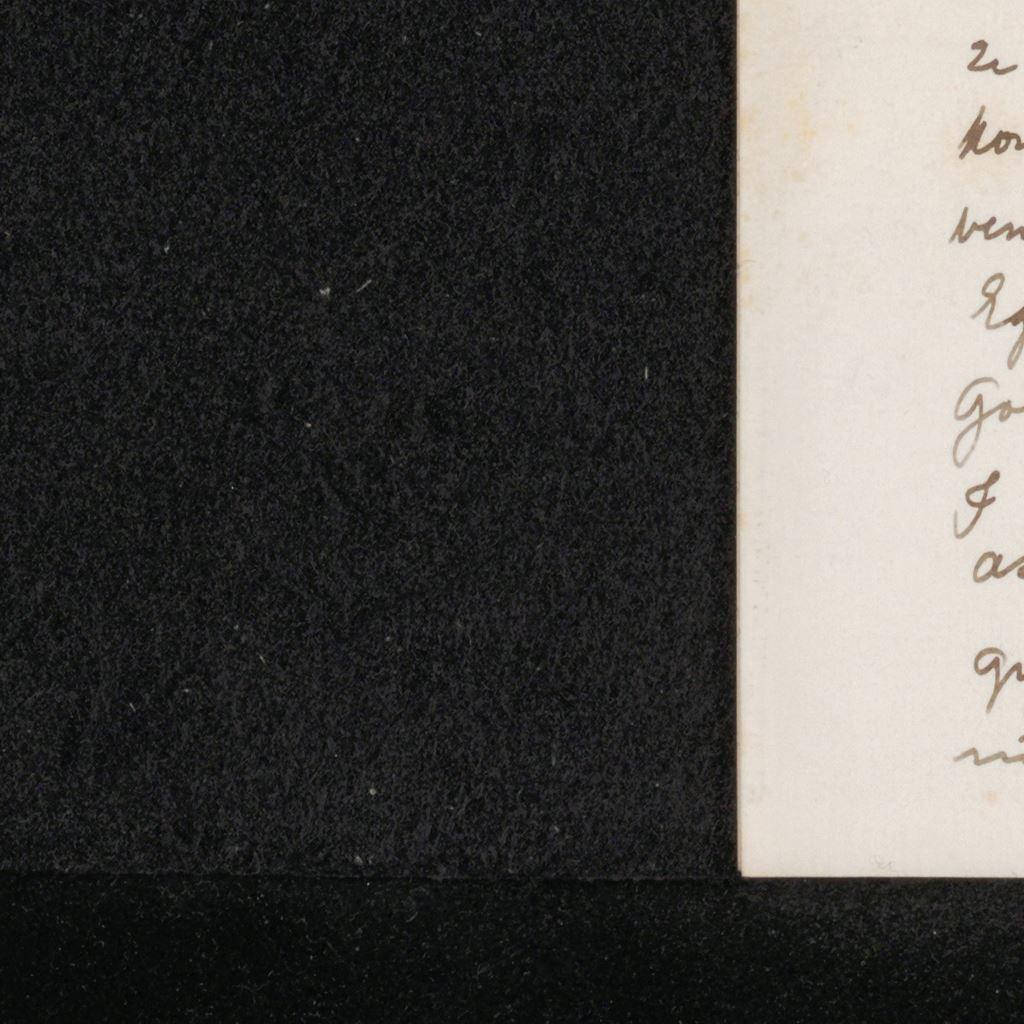 ze
kon
ven
Eg
Go
I
as
gr
ric